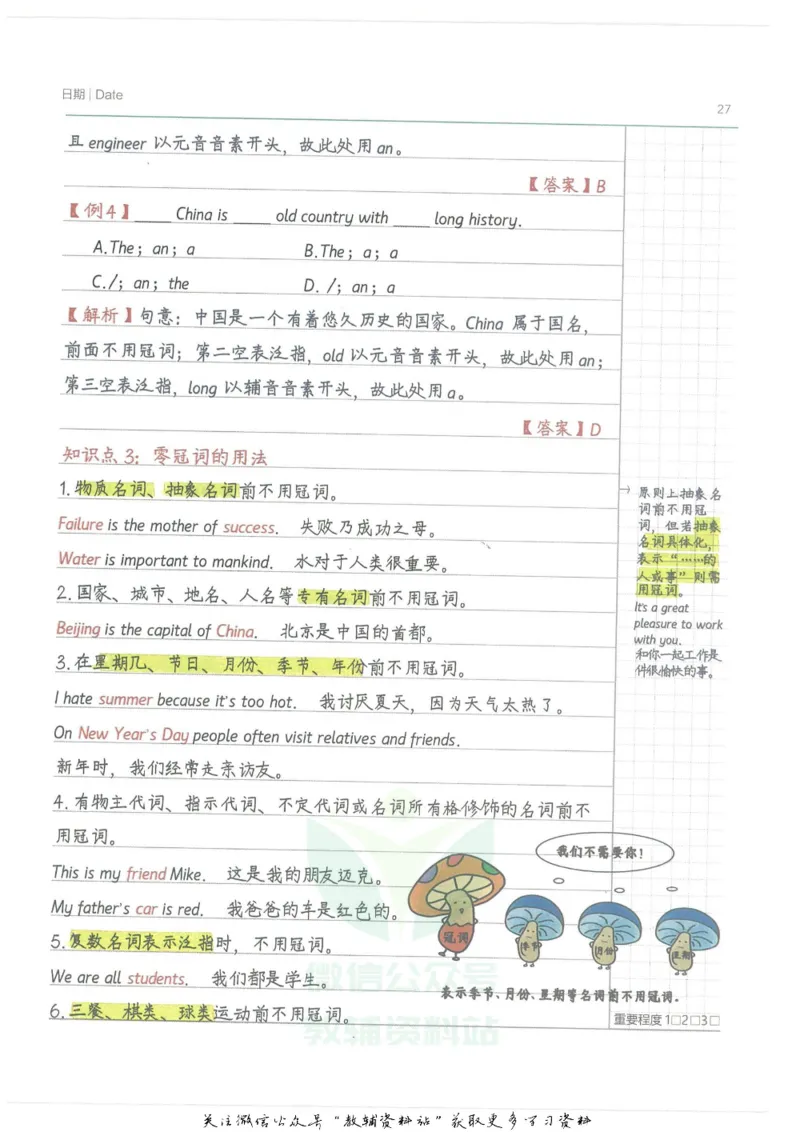 日期 | Date
27
且 engineer 以元音音素开头，故此处用 an。
【答案】B
【例4】_____ China is _____ old country with _____ long history.
A.The；an；a B.The；a；a
C./；an；the D. /；an；a
【解析】句意：中国是一个有着悠久历史的国家。China 属于国名，
前面不用冠词；第二空表泛指，old 以元音音素开头，故此处用 an；
第三空表泛指，long 以辅音音素开头，故此处用 a。
【答案】D
知识点 3：零冠词的用法
1.物质名词、抽象名词前不用冠词。
Failure is the mother of success. 失败乃成功之母。
Water is important to mankind. 水对于人类很重要。
2.国家、城市、地名、人名等专有名词前不用冠词。
Beijing is the capital of China. 北京是中国的首都。
3.在星期几、节日、月份、季节、年份前不用冠词。
I hate summer because it's too hot. 我讨厌夏天，因为天气太热了。
On New Year's Day people often visit relatives and friends.
新年时，我们经常走亲访友。
4.有物主代词、指示代词、不定代词或名词所有格修饰的名词前不
用冠词。
This is my friend Mike. 这是我的朋友迈克。
My father's car is red. 我爸爸的车是红色的。
5.复数名词表示泛指时，不用冠词。
We are all students. 我们都是学生。
6.三餐、棋类、球类运动前不用冠词。
原则上抽象名
词前不用冠
词，但若抽象
名词具体化，
表示“……的
人或事”则需
用冠词。
It's a great
pleasure to work
with you.
和你一起工作是
件很愉快的事。
我们不需要你！
冠词
季节
月份
星期
表示季节、月份、星期等名词前不用冠词。
重要程度 1□2□3□
微信公众号
教辅资料站
关注微信公众号“教辅资料站”获取更多学习资料